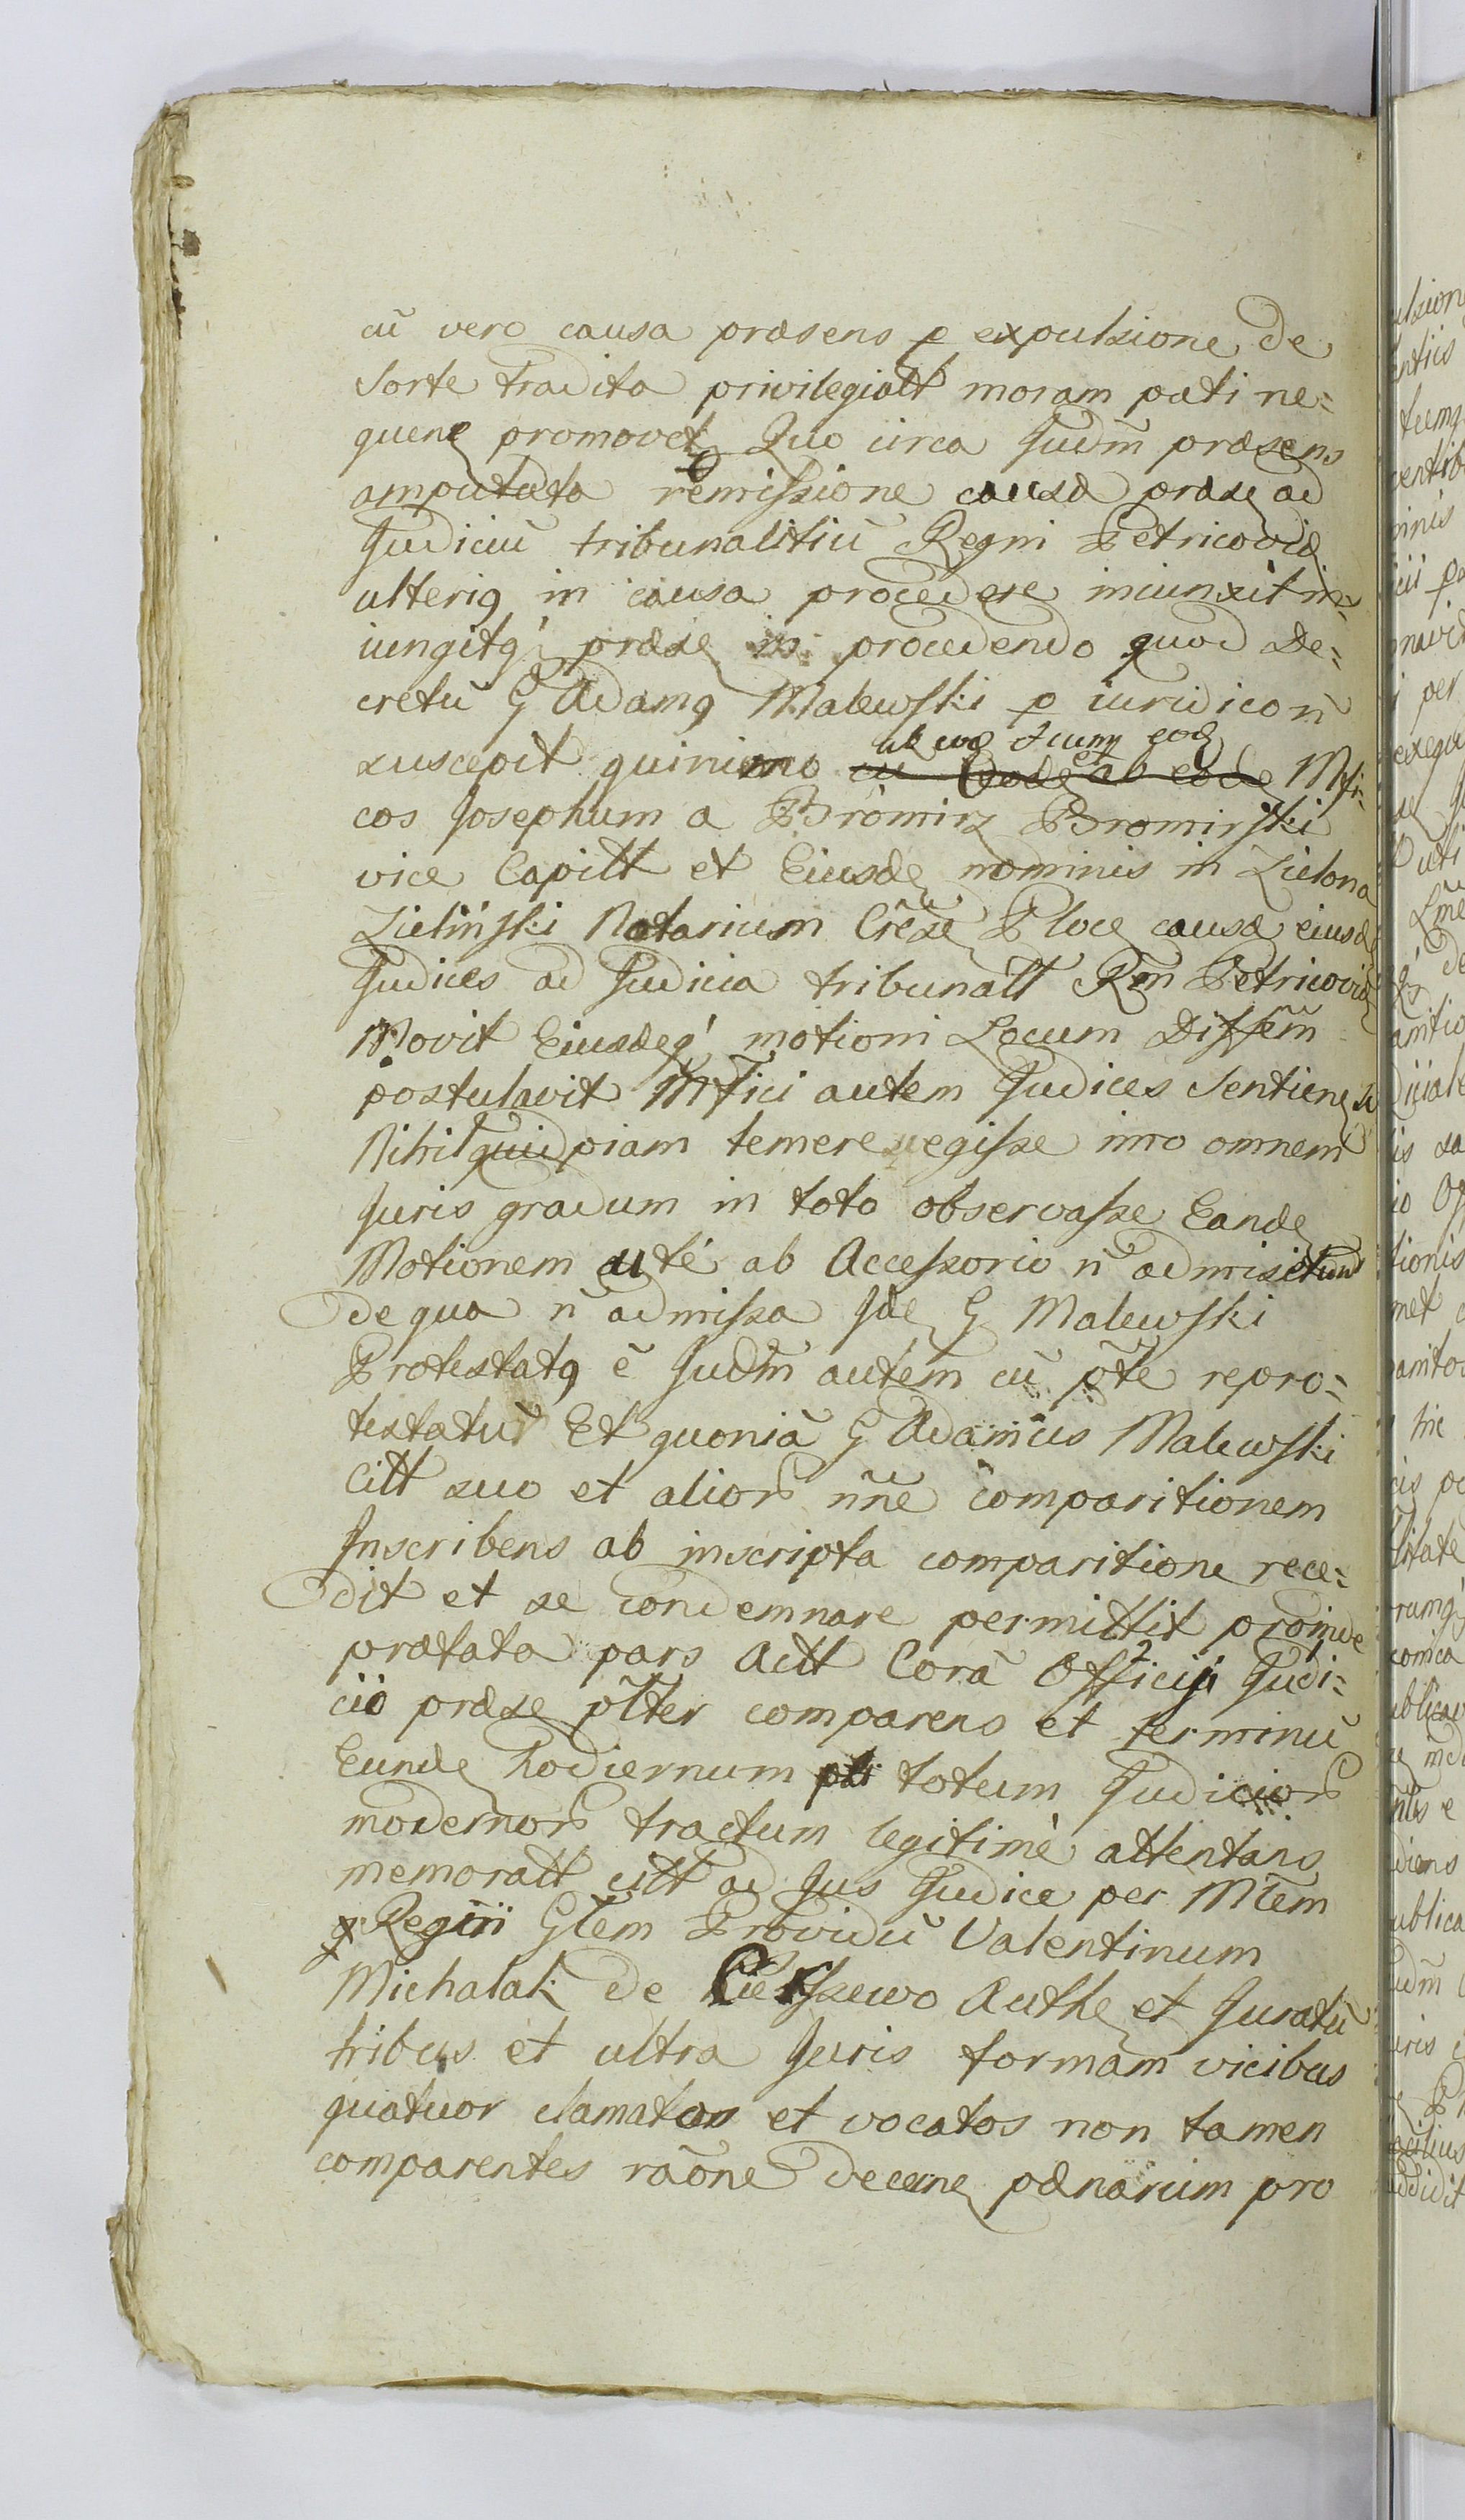 cū vero causa præsens p expulsione de
sorte tradita privilegiatt moram pati ne=
quene promovet Quo circa Judm præsens
amputata remissione causæ præse ad
Judiciū tribunalitiū Regni Petricoviæ
ulteriq in causa procedere iniunxit in=
iungitq præse in procedendo quod De=
cretū G Adamq Malewski p iuridico n̄
suscepit quinimo cu eode ab eode Mfi=
cos Josephum a Bromirz Bromirski
vice Capitt et Eiusde nominis in Zielona
Zieliński Notarium Crēse Ploce causæ eiusde
Judices ad Judicia tribunatt Rgn Petricoviæ
Movit Eiusdeq motioni Locum Dissem̄
postulavit Mfici autem Judices sentiene se
Nihil quidpiam temere egisse imo omnem
Juris gradum in toto observasse Eande
Motionem uté ab Accessorio n̄ admiserunt
de qua n̄ admissa Ide G Malewski
Protestatq ē Judm autem cū pte repro=
testatur Et quoniā G Adamus Malewski
Citt suo et alior nn̄e comparitionem
Inscribens ab inscripta comparitione rece=
dit et se condemnare permittit proinde
præfata pars Actt Corā Officij Judi=
cio præse pltter comparens et terminū
Eunde hodiernum totum Judicior
modernor tractum legitimè attentans
memoratt citt ad Jus Judice per Mtem
Regni Gtem Providū Valentinum
Michalak de Authe et Juratū
tribus et ultra Juris formam vicibus
quatuor clamatos et vocatos non tamen
comparentes raōne decerne pænarum pro